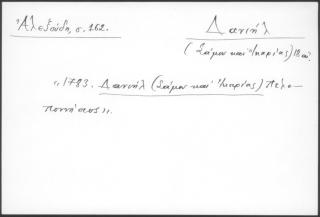 Ἀλεξούδη, σ. 162.
Δανιήλ
(Σάμου καὶ Ἰκαρίας)
"1783. Δανιήλ (Σάμου καὶ Ἰκαρίας) Πελο-
ποννήσιος".